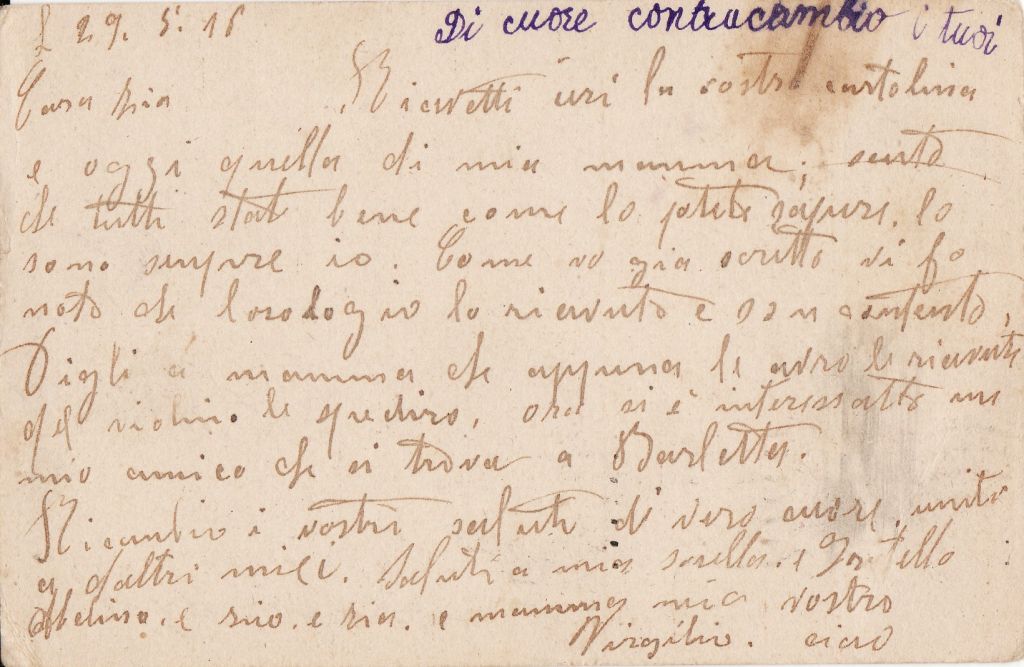 Di cuore contracambio i tuoi
li 29. 5. 16
Cara zia Ricevetti ieri la vostra cartolina
e oggi quella di mia mamma; sento
che tutti state bene come lo potete sapure. lo
sono sempre io. Come vo gia scritto vi fo
noto che lorologio lo ricevuto e son contento,
Digli a mamma che appena le avro le ricevute
del violino le spediro, ora si è interessatto un
mio amico che si trova a Barletta.
Ricambio i vostri saluti di vero cuore, unito
a d'altri miei. Saluti a mia sorella. e fratello
e zio. e zia. e mamma mia vostro
Virgilio. ciao